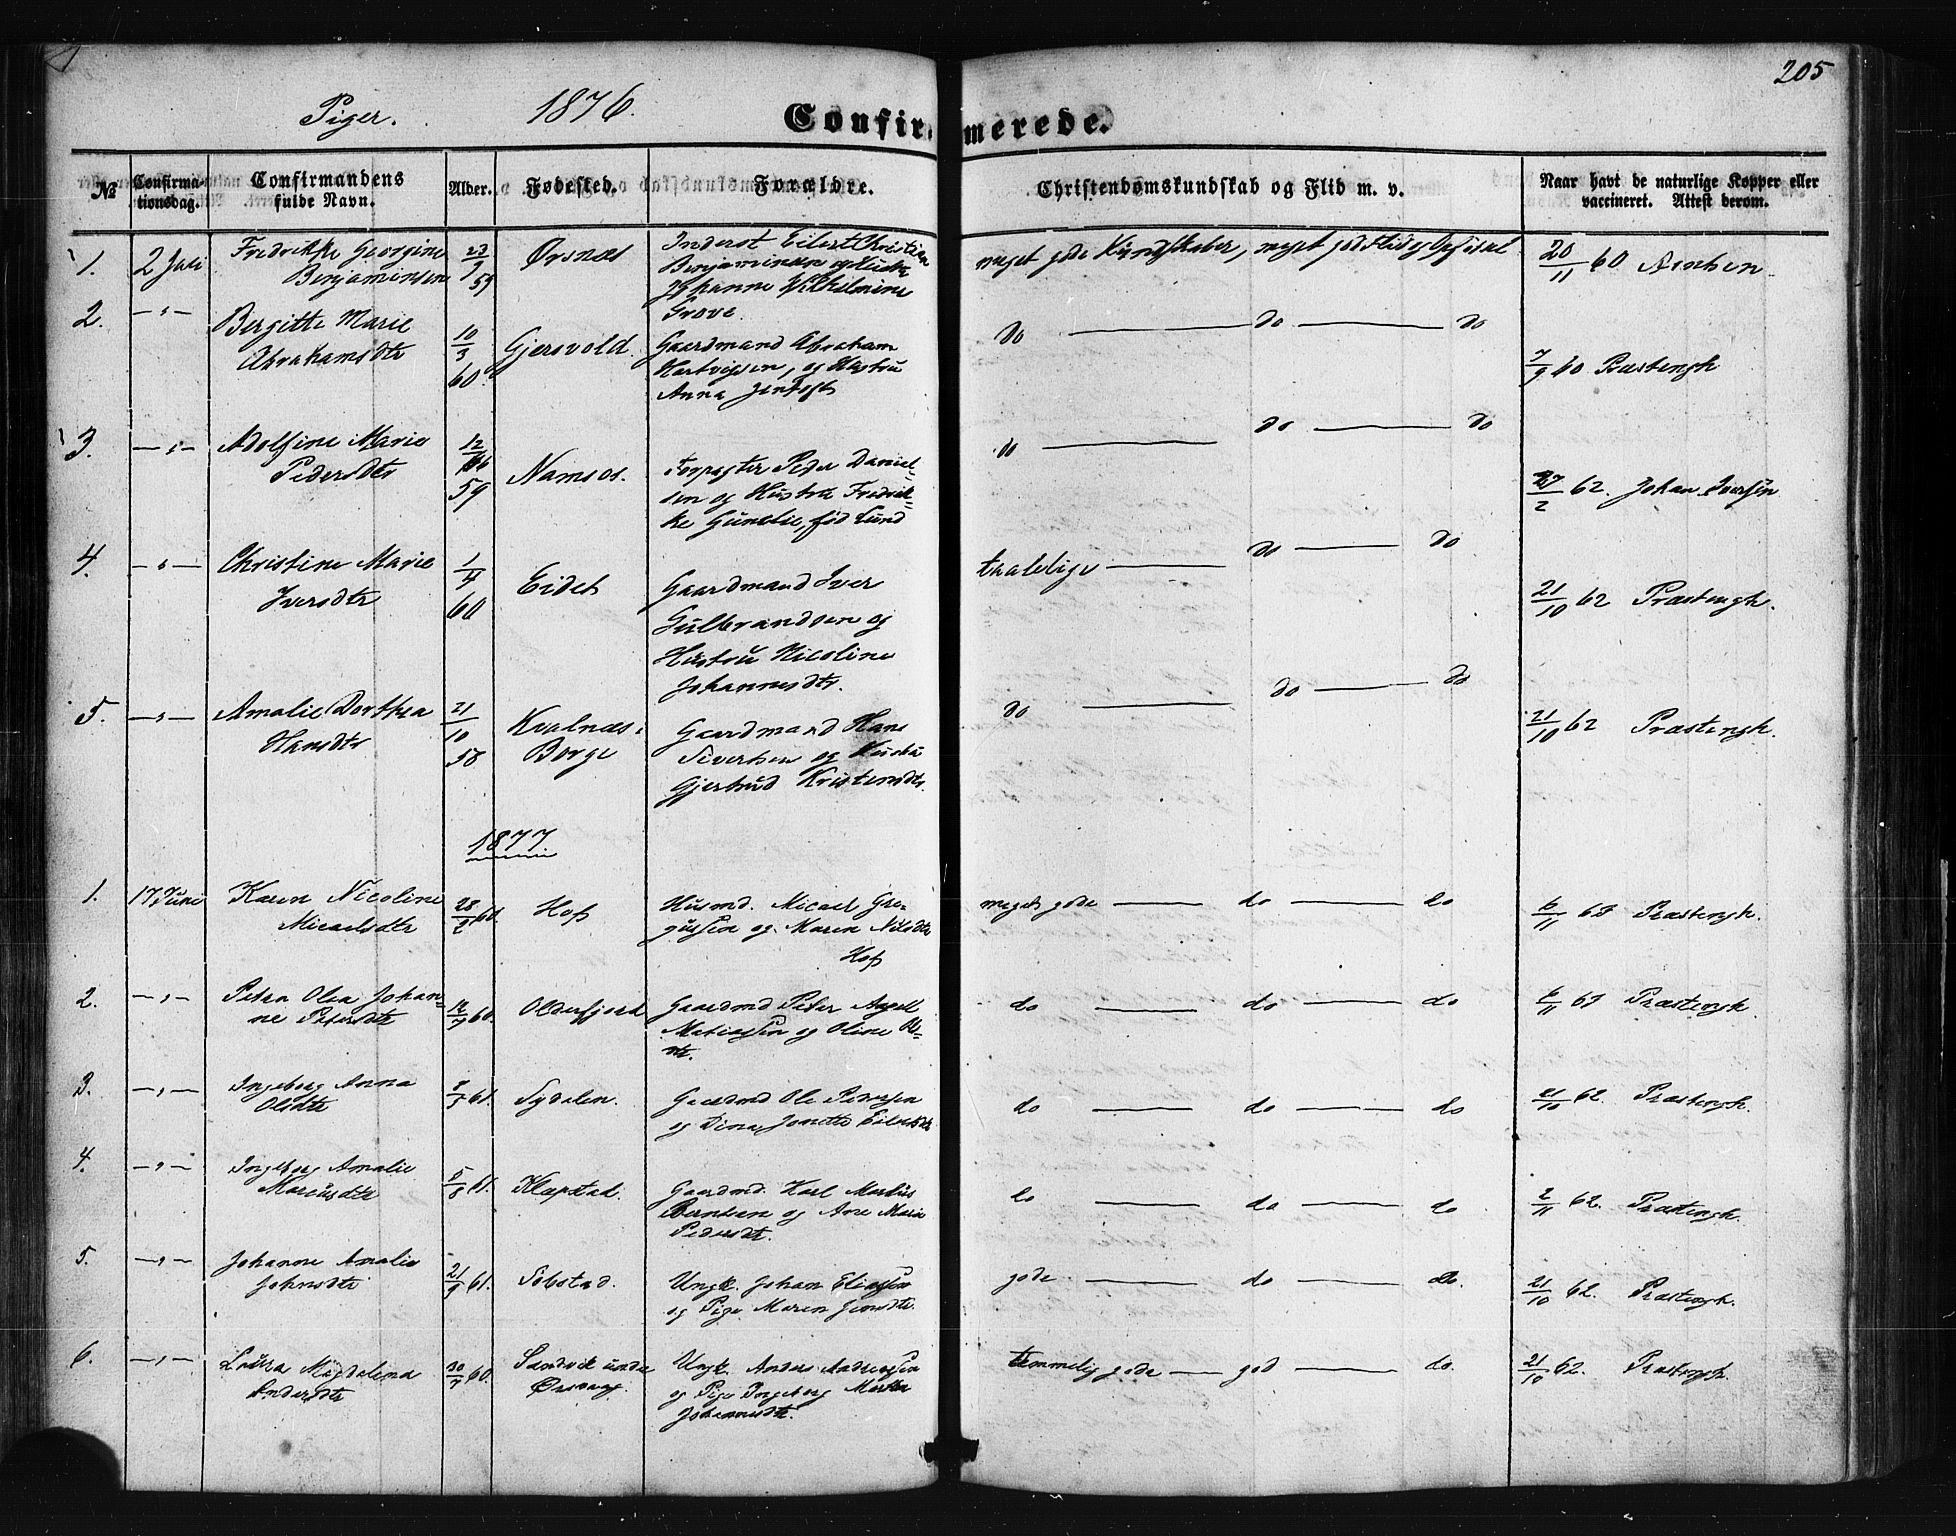 205
Piger. 1876. Confirmerede.
№ Confirmationsdag. Confirmandens fulde Navn. Alder. Fødested. Forældre. Christendomskundskab og Flid m. v. Naar havt de naturlige Kopper eller vaccineret. Attest derom.
1. 2 Juli Fredrikke Georgine Benjaminsen 59 Ørsnæs Inderst Eilert Christian Benjaminsen og Hustru Johanne Vilhelmine Grove. meget gode Kundskaber, meget god Flid og Opførsel 20/11 60
2. —〃— Bergitte Marie Abrahamsdtr 10/3 60. Gjersvold. Gaardmand Abraham Hartvigsen, og Hustru Anna Jentoft do — do — do 7/9 60 Præstengh
3. —〃— Adolfine Marie Pedersdtr 59 Namsos. Forpagter Peder Danielsen og Hustru Fredrikke Gunelie, fød Lund do — do — do 62. Johan Iversen
4. —〃— Christine Marie Iversdtr 1/4 60 Eidet Gaardmand Iver Gulbrandsen og Hustru Nicoline Johannesdtr. taalelige — do — do 21/10 62 Præstengh.
5. —〃— Amalie Dorthea Hansdtr 21/10 58 Kvalnæs i Borge Gaardmand Hans Sivertsen og Hustru Gjertrud Kristensdtr. do — do — do 21/10 62 Præstengh.
1877
1. 17 Juni Karen Nicoline Micaelsdtr 28/2 60. Hof Husmd. Micael Gregussen og Maren Nilsdtr Hof meget gode — do — do 6/11 Præstengh.
2. —〃— Petra Olea Johanne Petersdtr 60. Olderfjord Gaardmd Peter Angell Matiassen og Oline dtr. do — do — do 6/11 Præstengh.
3. —〃— Ingeborg Anna Olsdtr 61. Sydalen. Gaardmd Ole Pedersen og Dina Janette Eilertsdtr do — do — do 21/10 62. Præstengh.
4. —〃— Ingeborg Amalie Marcusdtr 5/8 61. Klepstad. Gaardmd. Karl Markus Berntsen og Ane Maria Pedersdtr. do — do — do 2/11 62. Præstengh.
5. —〃— Johanne Amalie Johnsdtr 21/9 61. Sebstad. Ungk. Johan Eliassen og Pige Maren Jensdtr. gode — do — do. 21/10 62. Præstengh.
6. —〃— Laura Magdalena Andersdtr 60. Sandvik under Ørsvaag. Ungk. Anders Andreassen og Pige Ingeborg Martha Johannesdtr. temmelig gode — god — do. 21/10 62. Præstengh.